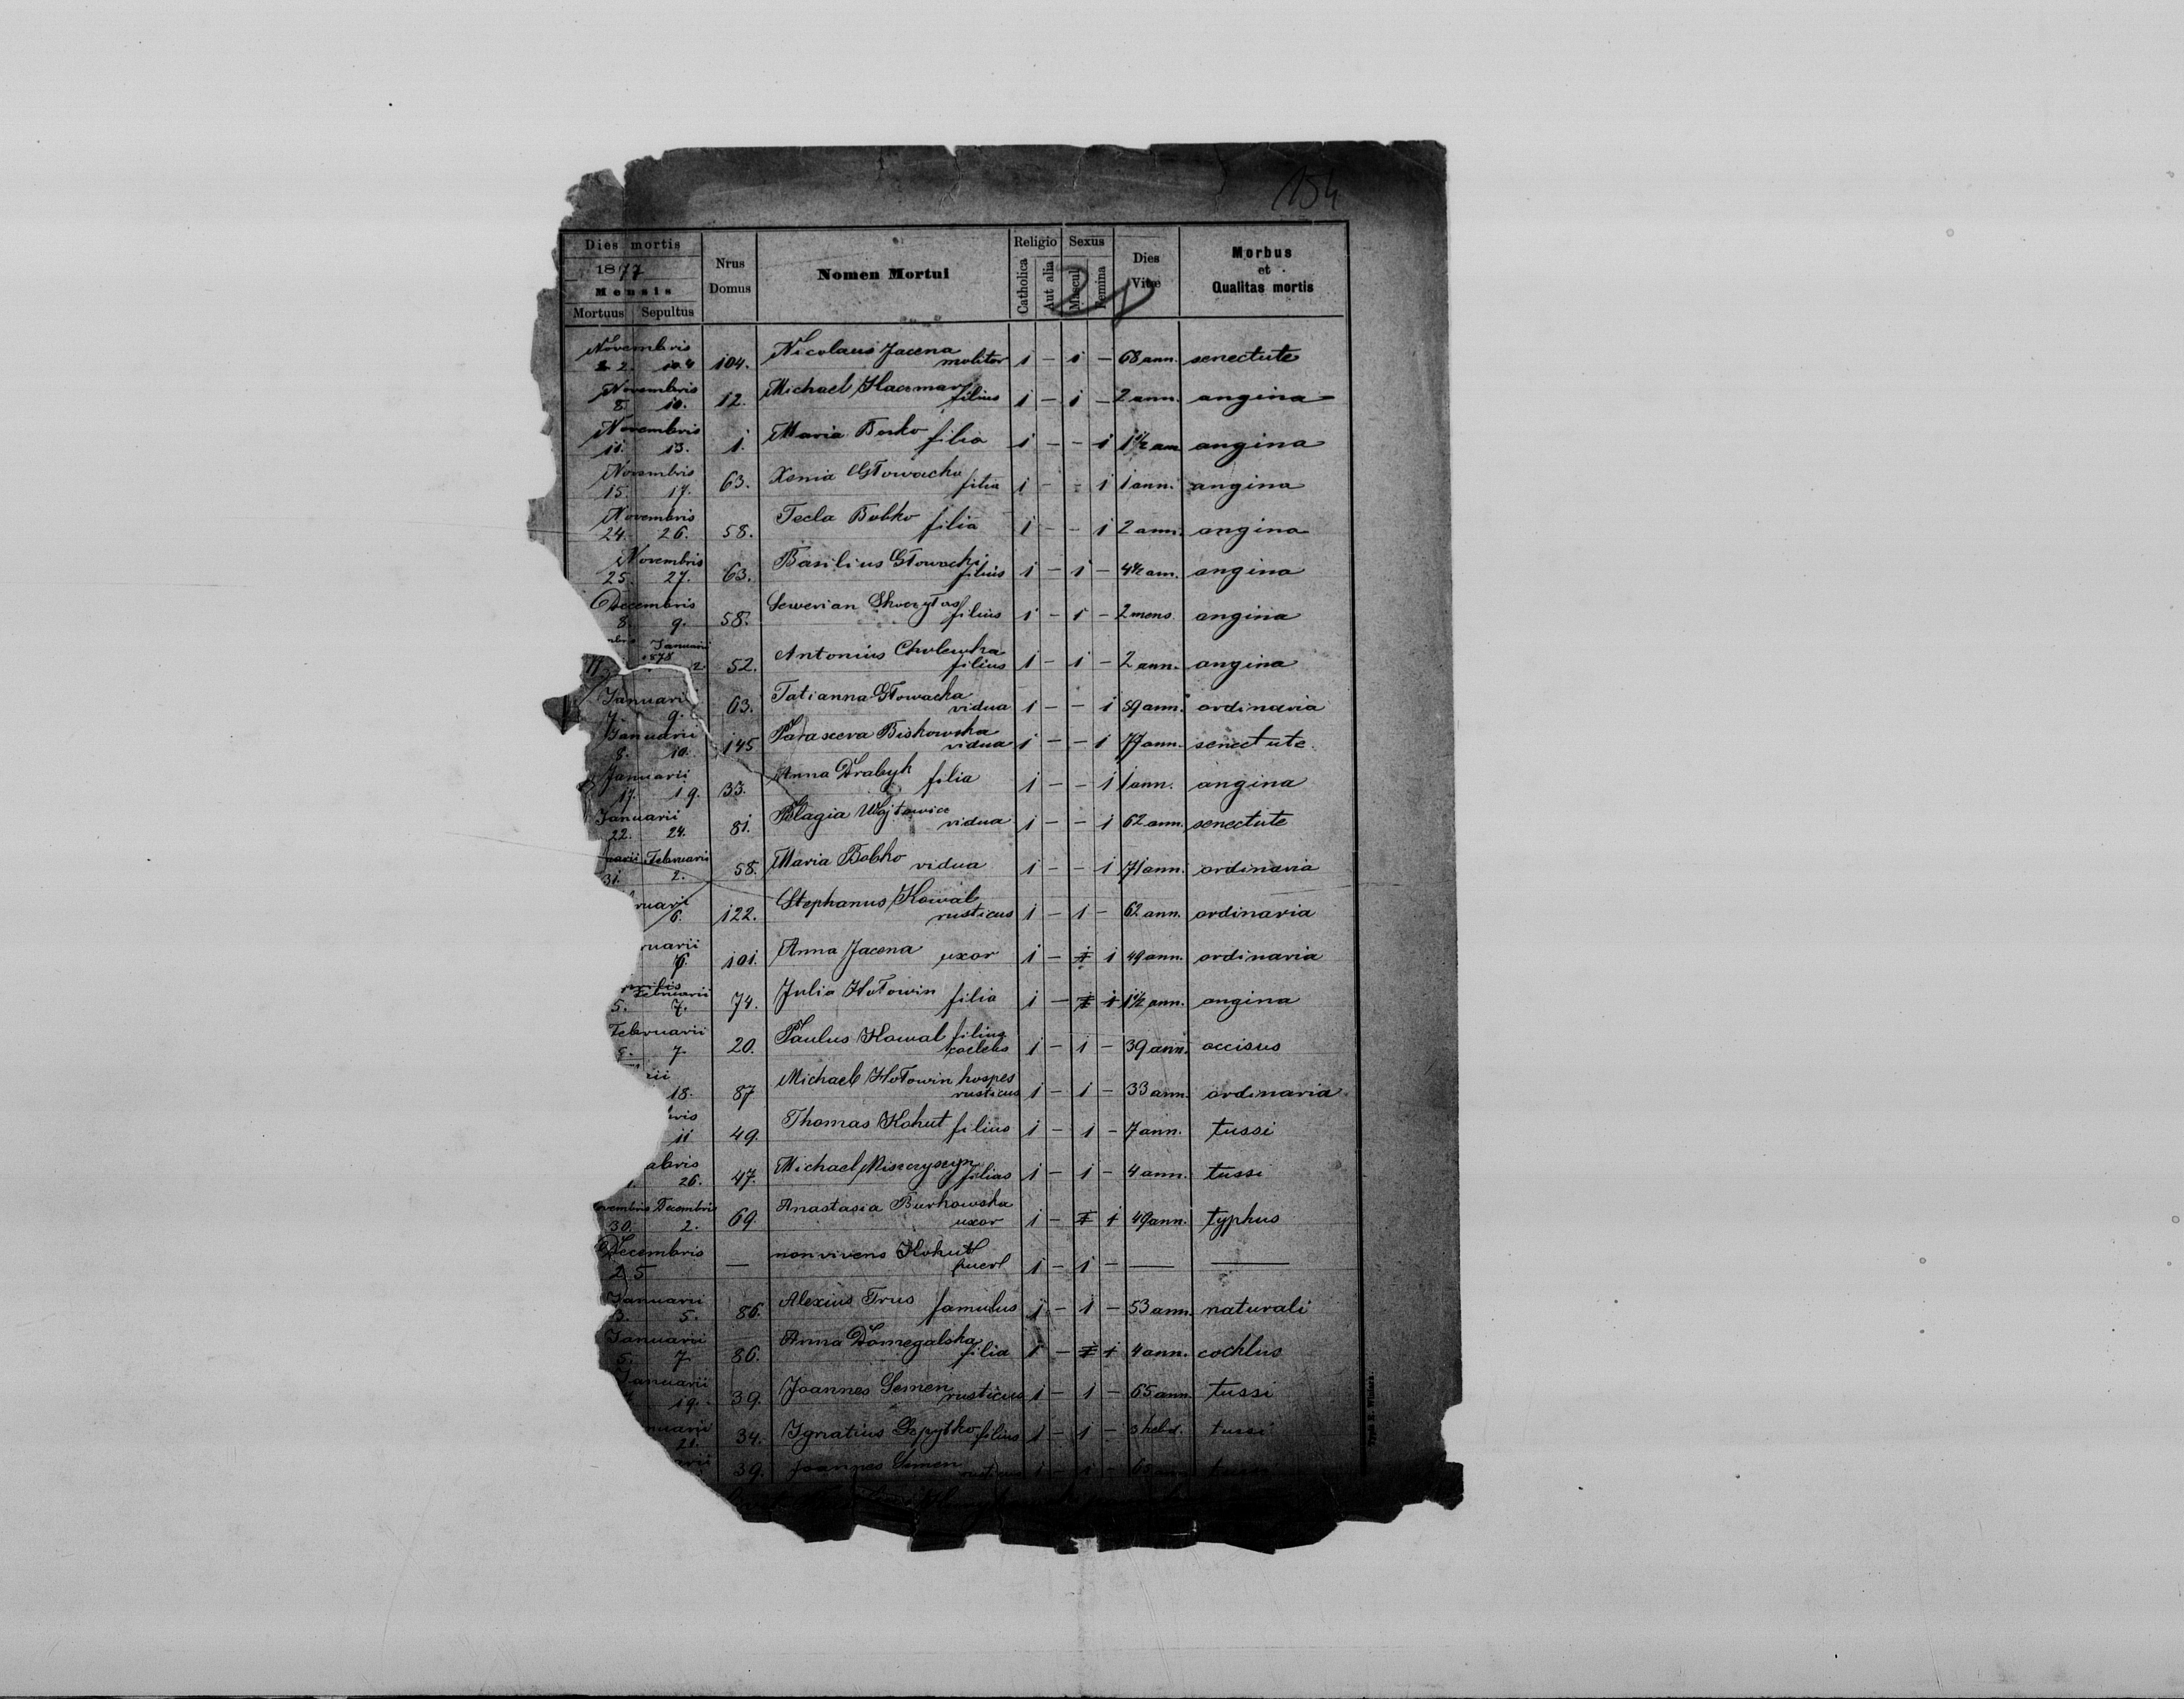 154
Dies mortis
1877
Mensis
Mortuus Sepultus
Nrus Domus
Nomen Mortui
Religio
Catholica
Aut alia
Sexus
Mascul
Femina
Dies Vitae
Morbus et Qualitas mortis
Novembris
2. 104. Nicolaus Jacena molitor 1 - 1 - 68 ann. senectute
Novembris
8. 10. 12. Michael filius 1 - 1 - 2 ann. angina
Novembris
11. 13. 1. Maria Borko filia 1 - - 1 1½ ann angina
Novembris
15. 17. 63. Xenia Głowacka filia 1 - - 1 1 ann. angina
Novembris
24. 26. 58. Tecla Bobko filia 1 - - 1 2 ann. angina
Novembris
25. 27. 63. Basilius Głowacki filius 1 - 1 - 4½ ann. angina
Decembris
8. 9. 58. Sewerian filius 1 - 1 - 2 mens. angina
Januarii
1878 2. 52. Antonius Cholewka filius 1 - 1 - 2 ann. angina
Januarii
7. 9. 63. Tatianna Głowacka vidua 1 - - 1 89 ann. ordinaria
Januarii
8. 10. 145 Parascera Biskowska vidua 1 - - 1 77 ann. senectute
Januarii
17. 19. 33. Anna Drabyk filia 1 - - 1 1 ann. angina
Januarii
22. 24. 81. Pelagia Wojtowicz vidua 1 - - 1 62 ann. senectute
uarii Februarii
31. 2. 58. Maria Bobko vidua 1 - - 1 71 ann. ordinaria
ruarii
6. 122. Stephanus Kowal rusticus 1 - 1 - 62 ann. ordinaria
ruarii
6. 101. Anna Jacena uxor 1 - 1 49 ann. ordinaria
Februarii
5. 7. 74. Julia Hołowin filia 1 - 1 1½ ann. angina
Februarii
7. 20. Paulus Kowal filius coelebs 1 - 1 - 39 ann. occisus
rii
18. 87 Michael Hołowin hospes rusticus 1 - 1 - 33 ann. ordinaria
bris
11 49. Thomas Kohut filius 1 - 1 - 7 ann. tussi
bris
26. 47. Michael filius 1 - 1 - 4 ann. tussi
ovembris Decembris
30. 2. 69. Anastasia Burkowska uxor 1 - 1 49 ann. typhus
Decembris
25 — non vivens Kohut puer 1 - 1 - — —
Januarii
3. 5. 86. Alexius Trus famulus 1 - 1 - 53 ann. naturali
Januarii
5. 7. 86. Anna Domegalska filia 1 - 1 4 ann. cochlus
Januarii
19. 39. Joannes Semen rusticus 1 - 1 - 65 ann. tussi
nuarii
21. 34. Ignatius filius 1 - 1 - 3 hebd. tussi
arii
39. Joannes Semen rusticus 1 - 1 - 65 tussi